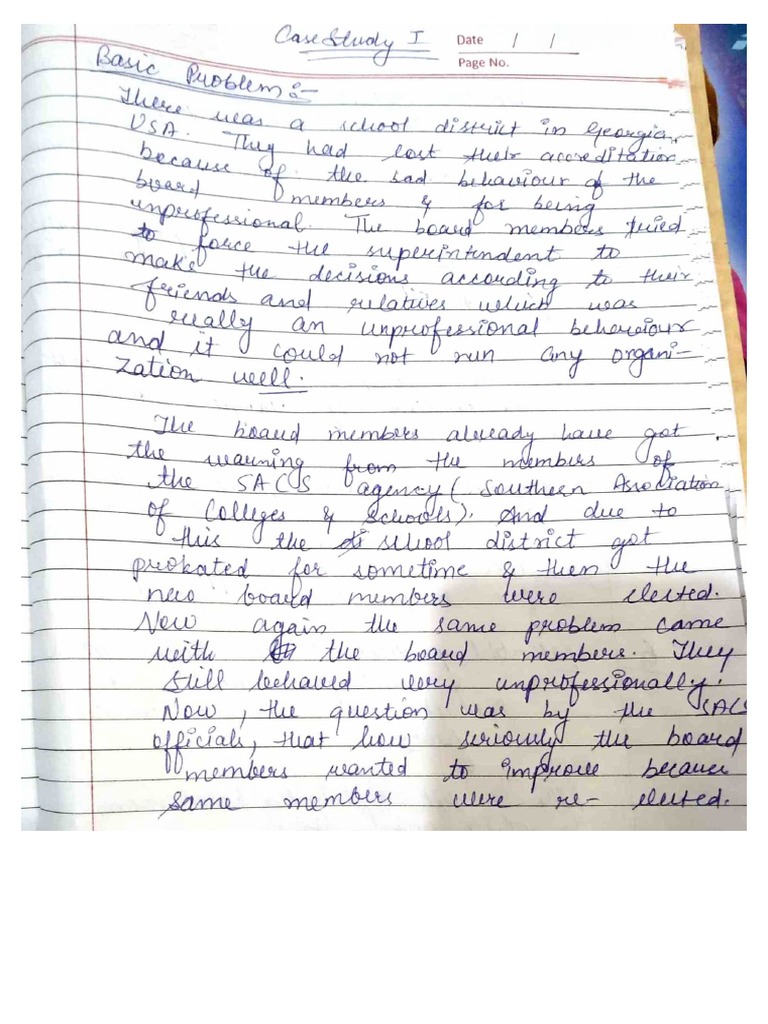 Case Study I
Date / /
Page No.
Basic Problem :-
There was a school district in Georgia,
USA. They had lost their accreditation
because of the sad behaviour of the
board members & for being
unprofessional. The board members tried
to force the superintendent to
make the decisions according to their
friends and relatives which was
really an unprofessional behaviour
and it could not run any organi-
zation well.
The board members already have got
the warning from the members of
the SACS agency (Southern Association
of Colleges & Schools). And due to
this the school district got
probated for sometime & then the
new board members were elected.
Now again the same problem came
with the board members. They
still behaved very unprofessionally.
Now, the question was by the SACS
officials, that how seriously the board
members wanted to improve because
same members were re-elected.